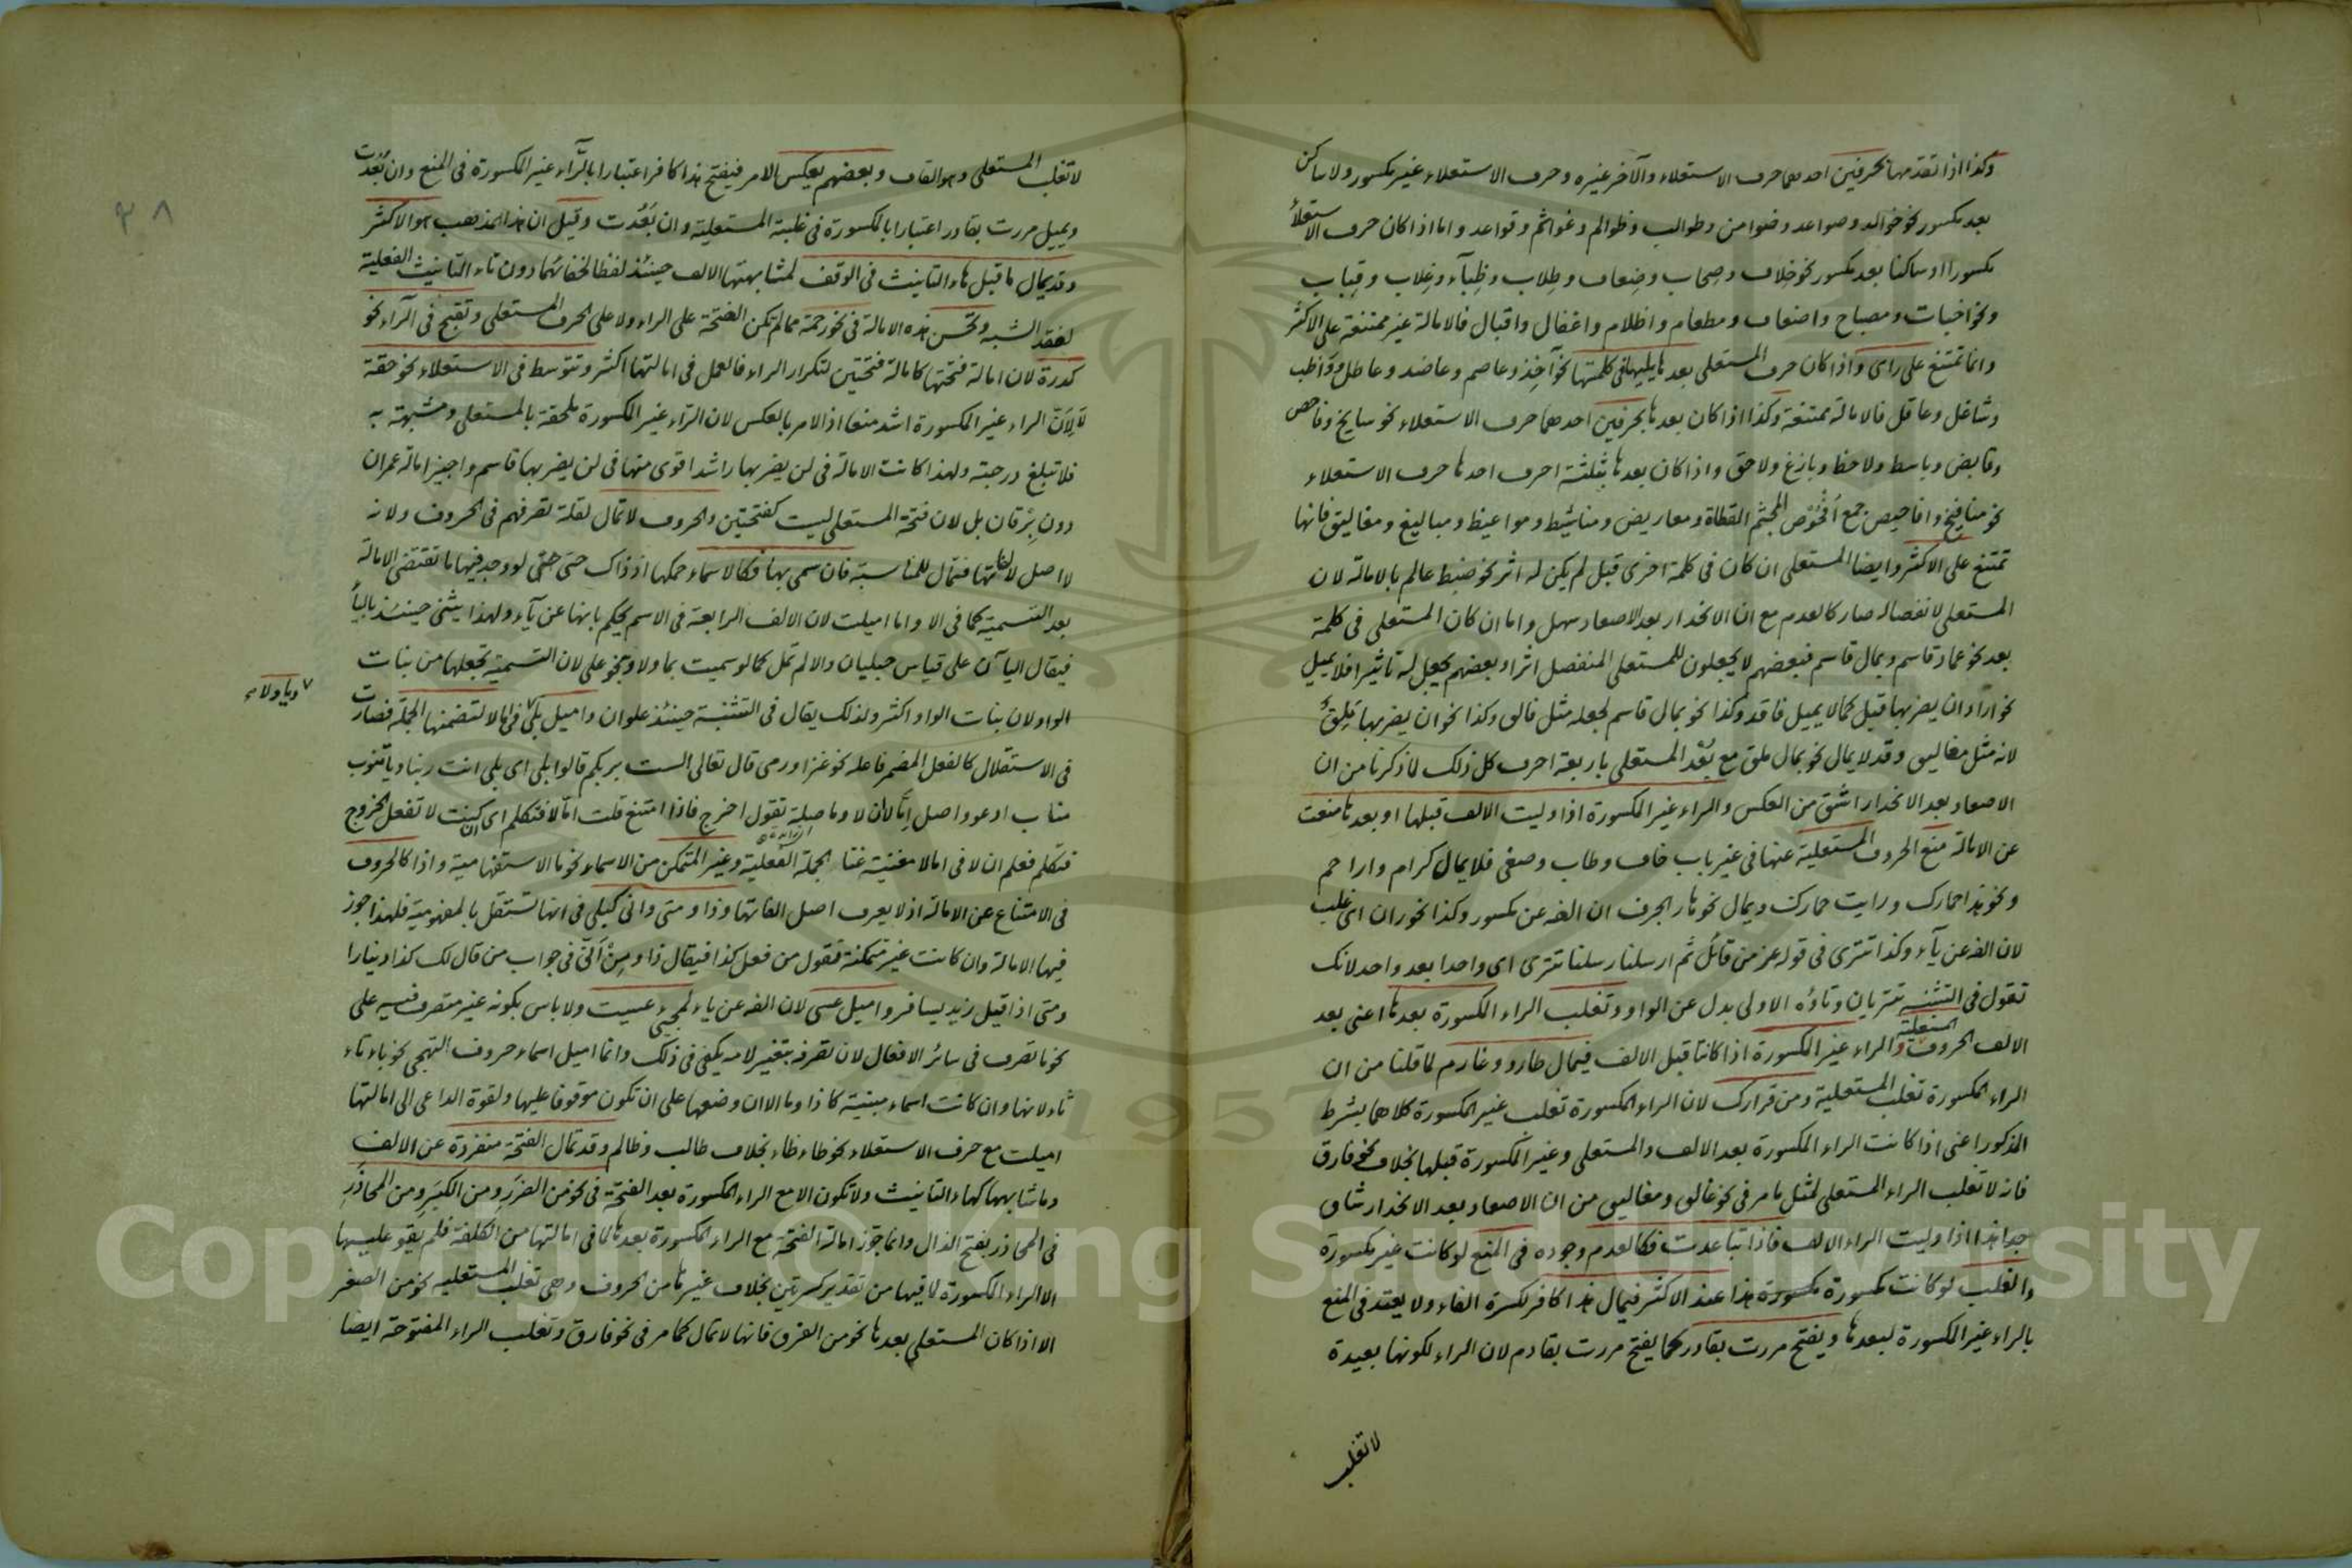 وكذا اذا تقدمها بحرفين احدهما حرف الاستعلاء والآخر غيره وحرف الاستعلاء غير مكسور ولا ساكن
بعد مكسور نحو خوالد وصواعد وضوامن وطوالب وظوالم وغوائم وقواعد واما اذا كان حرف الاستعلاء
مكسورا او ساكنا بعد مكسور نحو خلاف وصحاب وضعاف وطلاب وظِبآء وغلاب وقباب
ونحو اخبات ومصباح واضعاف ومطعام واظلام واغفال واقبال فالامالة غير ممتنعة على الاكثر
وانما تمتنع على راى واذا كان حرف المستعلى بعدها يليها فى كلمتها نحو آخذ وعاصم وعاضد وعاطل وواظب
وشاغل وعاقل فالامالة ممتنعة وكذا اذا كان بعدها بحرفين احدهما حرف الاستعلاء نحو سابخ وفاحص
وقابض وباسط ولاحظ وبازغ ولاحق واذا كان بعدها بثلثة احرف احدها حرف الاستعلاء
نحو منافيخ وافاحيص جمع اُفْحُوْص لمجثم القطاة ومعاريض ومناشيط ومواعيظ ومباليغ ومغاليق فانها
تمتنع على الاكثر وايضا المستعلى ان كان فى كلمة اخرى قبل لم يكن له اثر نحو ضبط عالم بالامالة لان
المستعلى لانفصاله صار كالعدم مع ان الانحدار بعد الاصعاد سهل واما ان كان المستعلى فى كلمة
بعد نحو عماد قاسم وبمال قاسم فبعضهم لا يجعلون للمستعلى المنفصل اثرا وبعضهم يجعل له تاثيرا فلا يميل
نحو اراد ان يضربها قبل كما لا يميل فاقد وكذا نحو بمال قاسم لجعله مثل فالق وكذا نحو ان يضربها مَلِقٌ
لانه مثل مغاليق وقد لا يمال نحو بمال ملق مع بُعْد المستعلى باربعة احرف كل ذلك لما ذكرنا من ان
الاصعاد بعد الانحدار اشق من العكس والراء غير المكسورة اذا وليت الالف قبلها او بعدها منعت
عن الامالة منع الحروف المستعلية عنها فى غير باب خاف وطاب وصغى فلا يمال كرام واراحم
ونحو هذا حمارك ورايت حمارك ويمال نحو هار الجرف ان الفه عن مكسور وكذا نحو ران اى غلب
لان الفه عن يآء وكذا تترى فى قوله عز من قائل ثم ارسلنا رسلنا تترى اى واحدا بعد واحد لانك
تقول فى التثنيه تتريان وتاؤه الاولى بدل عن الواو وتغلب الراء المكسورة بعدها اعنى بعد
الالف الحروف المستعلية والراء غير المكسورة اذا كانتا قبل الالف فيمال طارد وغارم لما قلنا من ان
الراء المكسورة تغلب المستعلية ومن قرارك لان الراء المكسورة تغلب غير المكسورة كلاهما بشرط
المذكور اعنى اذا كانت الراء المكسورة بعد الالف والمستعلى وغير المكسورة قبلها بخلاف نحو فارق
فانه لا تغلب الراء المستعلى لمثل ما مر فى نحو غالق ومغاليق من ان الاصعاد بعد الانحدار شاق
جدا هذا اذا وليت الراء الالف فاذا تباعدت فكالعدم وجوده فى المنع لو كانت غير مكسورة
والغلب لو كانت مكسورة مكسورة هذا عند الاكثر فيمال هذا كافر لكسرة الفاء ولا يعتد فى المنع
بالراء غير المكسورة لبعدها ويفتح مررت بقادر كما يفتح مررت بقادم لان الراء لكونها بعيدة
لا تغلب
٣٨
لا تغلب المستعلى وهو القاف وبعضهم يعكس الامر فيفتح هذا كافر اعتبارا بالرّآء غير المكسورة فى المنع وان بَعُدت
ويميل مررت بقادر اعتبارا بالمكسورة فى غلبة المستعلية وان بَعُدت وقيل ان هذا المذهب هو الاكثر
وقد يمال ما قبل هاء التانيث فى الوقف لمشابهتها الالف حينئذ لفظا لخفائهما دون تاء التانيث الفعلية
لفقد الشبه وتحسن هذه الامالة فى نحو رحمة مما لم تكن الفتحة على الراء ولا على الحرف المستعلى وتقبح فى الرآء نحو
كدرة لان امالة فتحتها كامالة فتحتين لتكرار الراء فالعمل فى امالتها اكثر وتتوسط فى الاستعلاء نحو حقة
لا لِاَنّ الراء غير المكسورة اشد منعا اذ الامر بالعكس لان الرّاء غير المكسورة ملحقة بالمستعلى ومشبهة به
فلا تبلغ درجته ولهذا كانت الامالة فى لن يضربها راشد اقوى منها فى لن يضربها قاسم واجيز امالة عمران
دون بِرْقان بل لان فتحة المستعلى ليست كفتحتين والحروف لا تمال لقلة تصرفهم فى الحروف ولانه
لا اصل لالفاتها فتمال للمناسبة فان سمى بها فكالاسماء حكمها اذ ذاك حتى حتى لو وجد فيها ما تقتضى الامالة
بعد التسمية كما فى الا واما اميلت لان الالف الرابعة فى الاسم يحكم بانها عن يآء ولهذا يثنى حينئذ باليأ
فيقال اليآن على قياس حبليان والا لم تمل كما لو سميت بما ولا ونحو على لان التسمية تجعلها من بنات
الواو لان بنات الواو اكثر ولذلك يقال فى التثنية حينئذ علوان واميل بلى فى امالا لتضمنها الجملة فصارت
ويا ولاء
فى الاستقلال كالفعل المضمر فاعله نحو غزا ورمى قال تعالى الست بربكم قالوا بلى اى بلى انت ربنا ويا تنوب
مناب ادعو واصل اِمَّا لا ان لا وما صلة تقول اخرج فاذا امتنع قلت امّا لا فتكلم اى ان كنت لا تفعل الخروج
فتكلم فعلم ان لا فى امالا مغنية غنا الجملة الفعلية وغير المتمكن من الاسماء نحو ما الاستفهامية واذا كالحروف
فى الامتناع عن الامالة اذ لا يعرف اصل الفاتها وذا ومتى وانى كبلى فى انها تستقل بالمفهومية فلهذا جوز
فيها الامالة وان كانت غير متمكنة فتقول من فعل كذا فيقال ذا ومِنْ اَنّى فى جواب من قال لك كذا دينارا
ومتى اذا قيل زيد يسافر واميل عسى لان الفه عن ياء لمجئ عسيت ولا باس بكونه غير متصرف فيه على
نحو ما تصرف فى سائر الافعال لان تصرفه بتغير لامه يكفى فى ذلك وانما اميل اسماء حروف التهجى نحو باء تاء
ثاء لانها وان كانت اسماء مبنية كاذا وما الا ان وضعها على ان تكون موقوفا عليها ولقوة الداعى الى امالتها
اميلت مع حرف الاستعلاء نحو طاء ظاء بخلاف طالب وظالم وقد تمال الفتحة منفردة عن الالف
وما شابهها كهاء التانيث ولا تكون الا مع الراء المكسورة بعد الفتحة فى نحو من الضرَرِ ومن الكِبَرِ ومن المحاذَرِ
فى المحاذر بفتح الذال وانما جوز امالة الفتحة مع الراء المكسورة بعدها لما فى امالتها من الكلفة فلم يقو عليها
الا الراء المكسورة لما فيها من تقدير كسرتين بخلاف غيرها من الحروف وهى تغلب المستعليه نحو من الصغر
الا اذا كان المستعلى بعدها نحو من الفرق فانها لا تمال كما مر فى نحو فارق وتغلب الراء المفتوحة ايضا
Copyright © King Saud University
1957